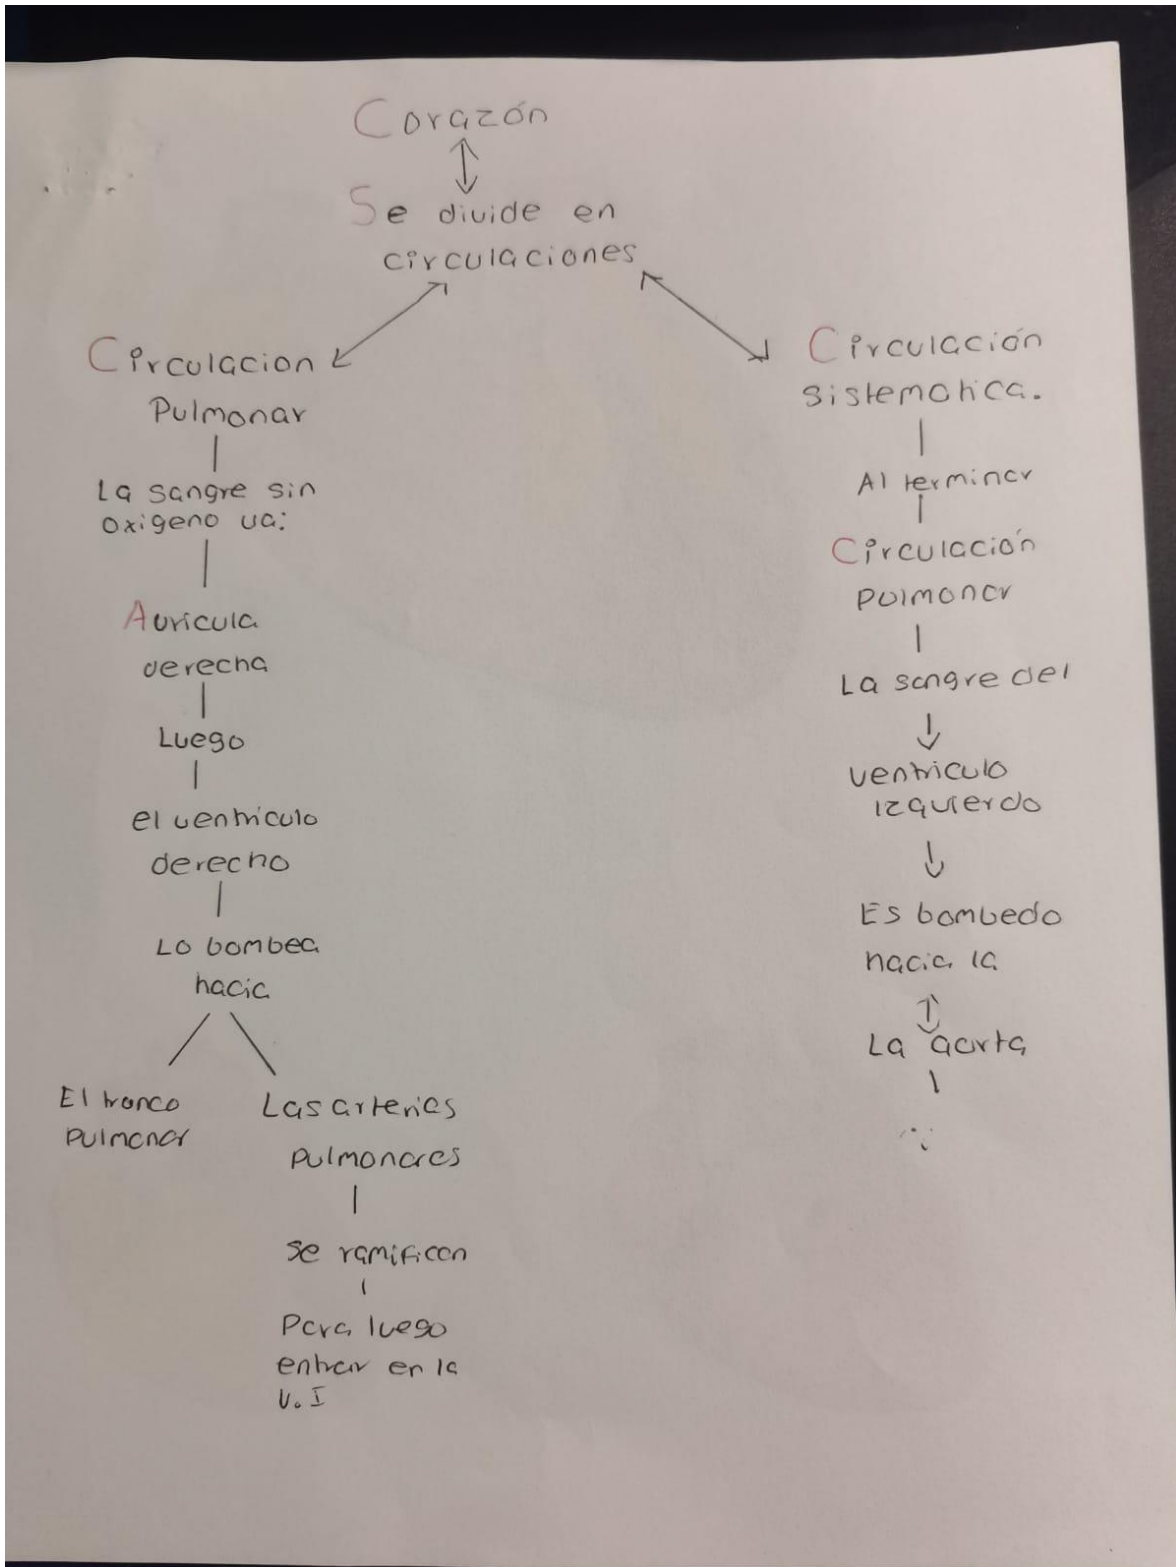 Corazón
Se divide en
circulaciones
Circulacion
Pulmonar
La sangre sin
oxigeno va:
Auricula
derecha
Luego
el ventriculo
derecho
Lo bombea
hacia
El tronco
Pulmonar
Las arterias
Pulmonares
se ramifican
Para luego
entrar en la
V.I
Circulación
sistematica.
Al terminar
Circulación
pulmonar
La sangre del
ventriculo
izquierdo
Es bombedo
hacia la
La aorta